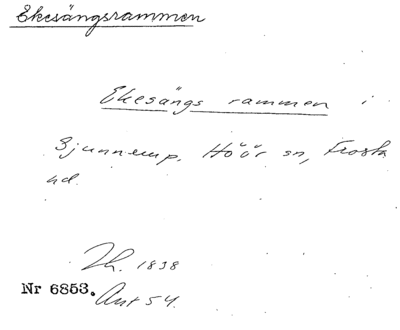 Ekesängsrammen
Ekesängs rammen i
Sjunnerup. Höör sn, Frosta
hd.
Th. 1838
Nr 6853. Ant 54.